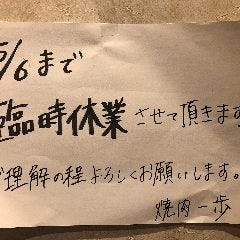 5/6まで
臨時休業させて頂きます
ご理解の程よろしくお願いします。
焼肉一歩